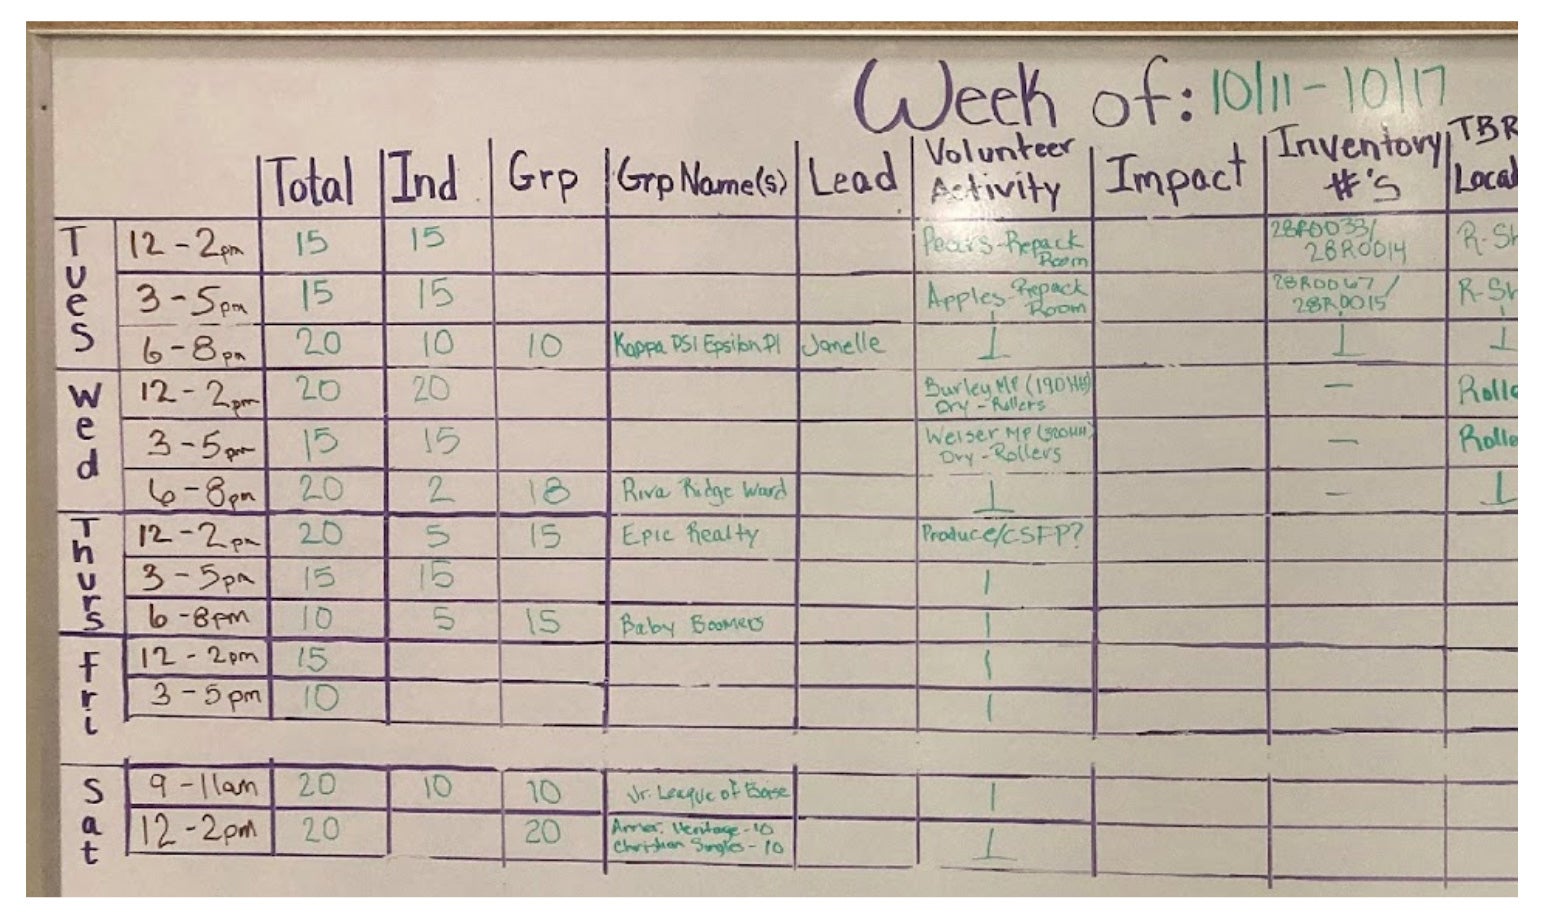 Week of: 10/11 - 10/17
Total Ind Grp Grp Name(s) Lead Volunteer Activity Impact Inventory #'s TBR
Tues
12-2pm 15 15 Pears-Repack Room 28R0033/ 28R0014
3-5pm 15 15 Apples-Repack Room 28R0067/ 28R0015
6-8pm 20 10 10 Kappa PSI Epsilon PI Janelle
Wed
12-2pm 20 20 Burley MP (190HH) Dry-Rollers —
3-5pm 15 15 Weiser MP (320HH) Dry-Rollers —
6-8pm 20 2 18 Riva Ridge Ward —
Thurs
12-2pm 20 5 15 Epic Realty Produce/CSFP?
3-5pm 15 15
6-8pm 10 5 15 Baby Boomers
Fri
12-2pm 15
3-5pm 10
Sat
9-11am 20 10 10 Jr. League of Boise
12-2pm 20 20 Amer. Heritage-10 Christian Singles-10